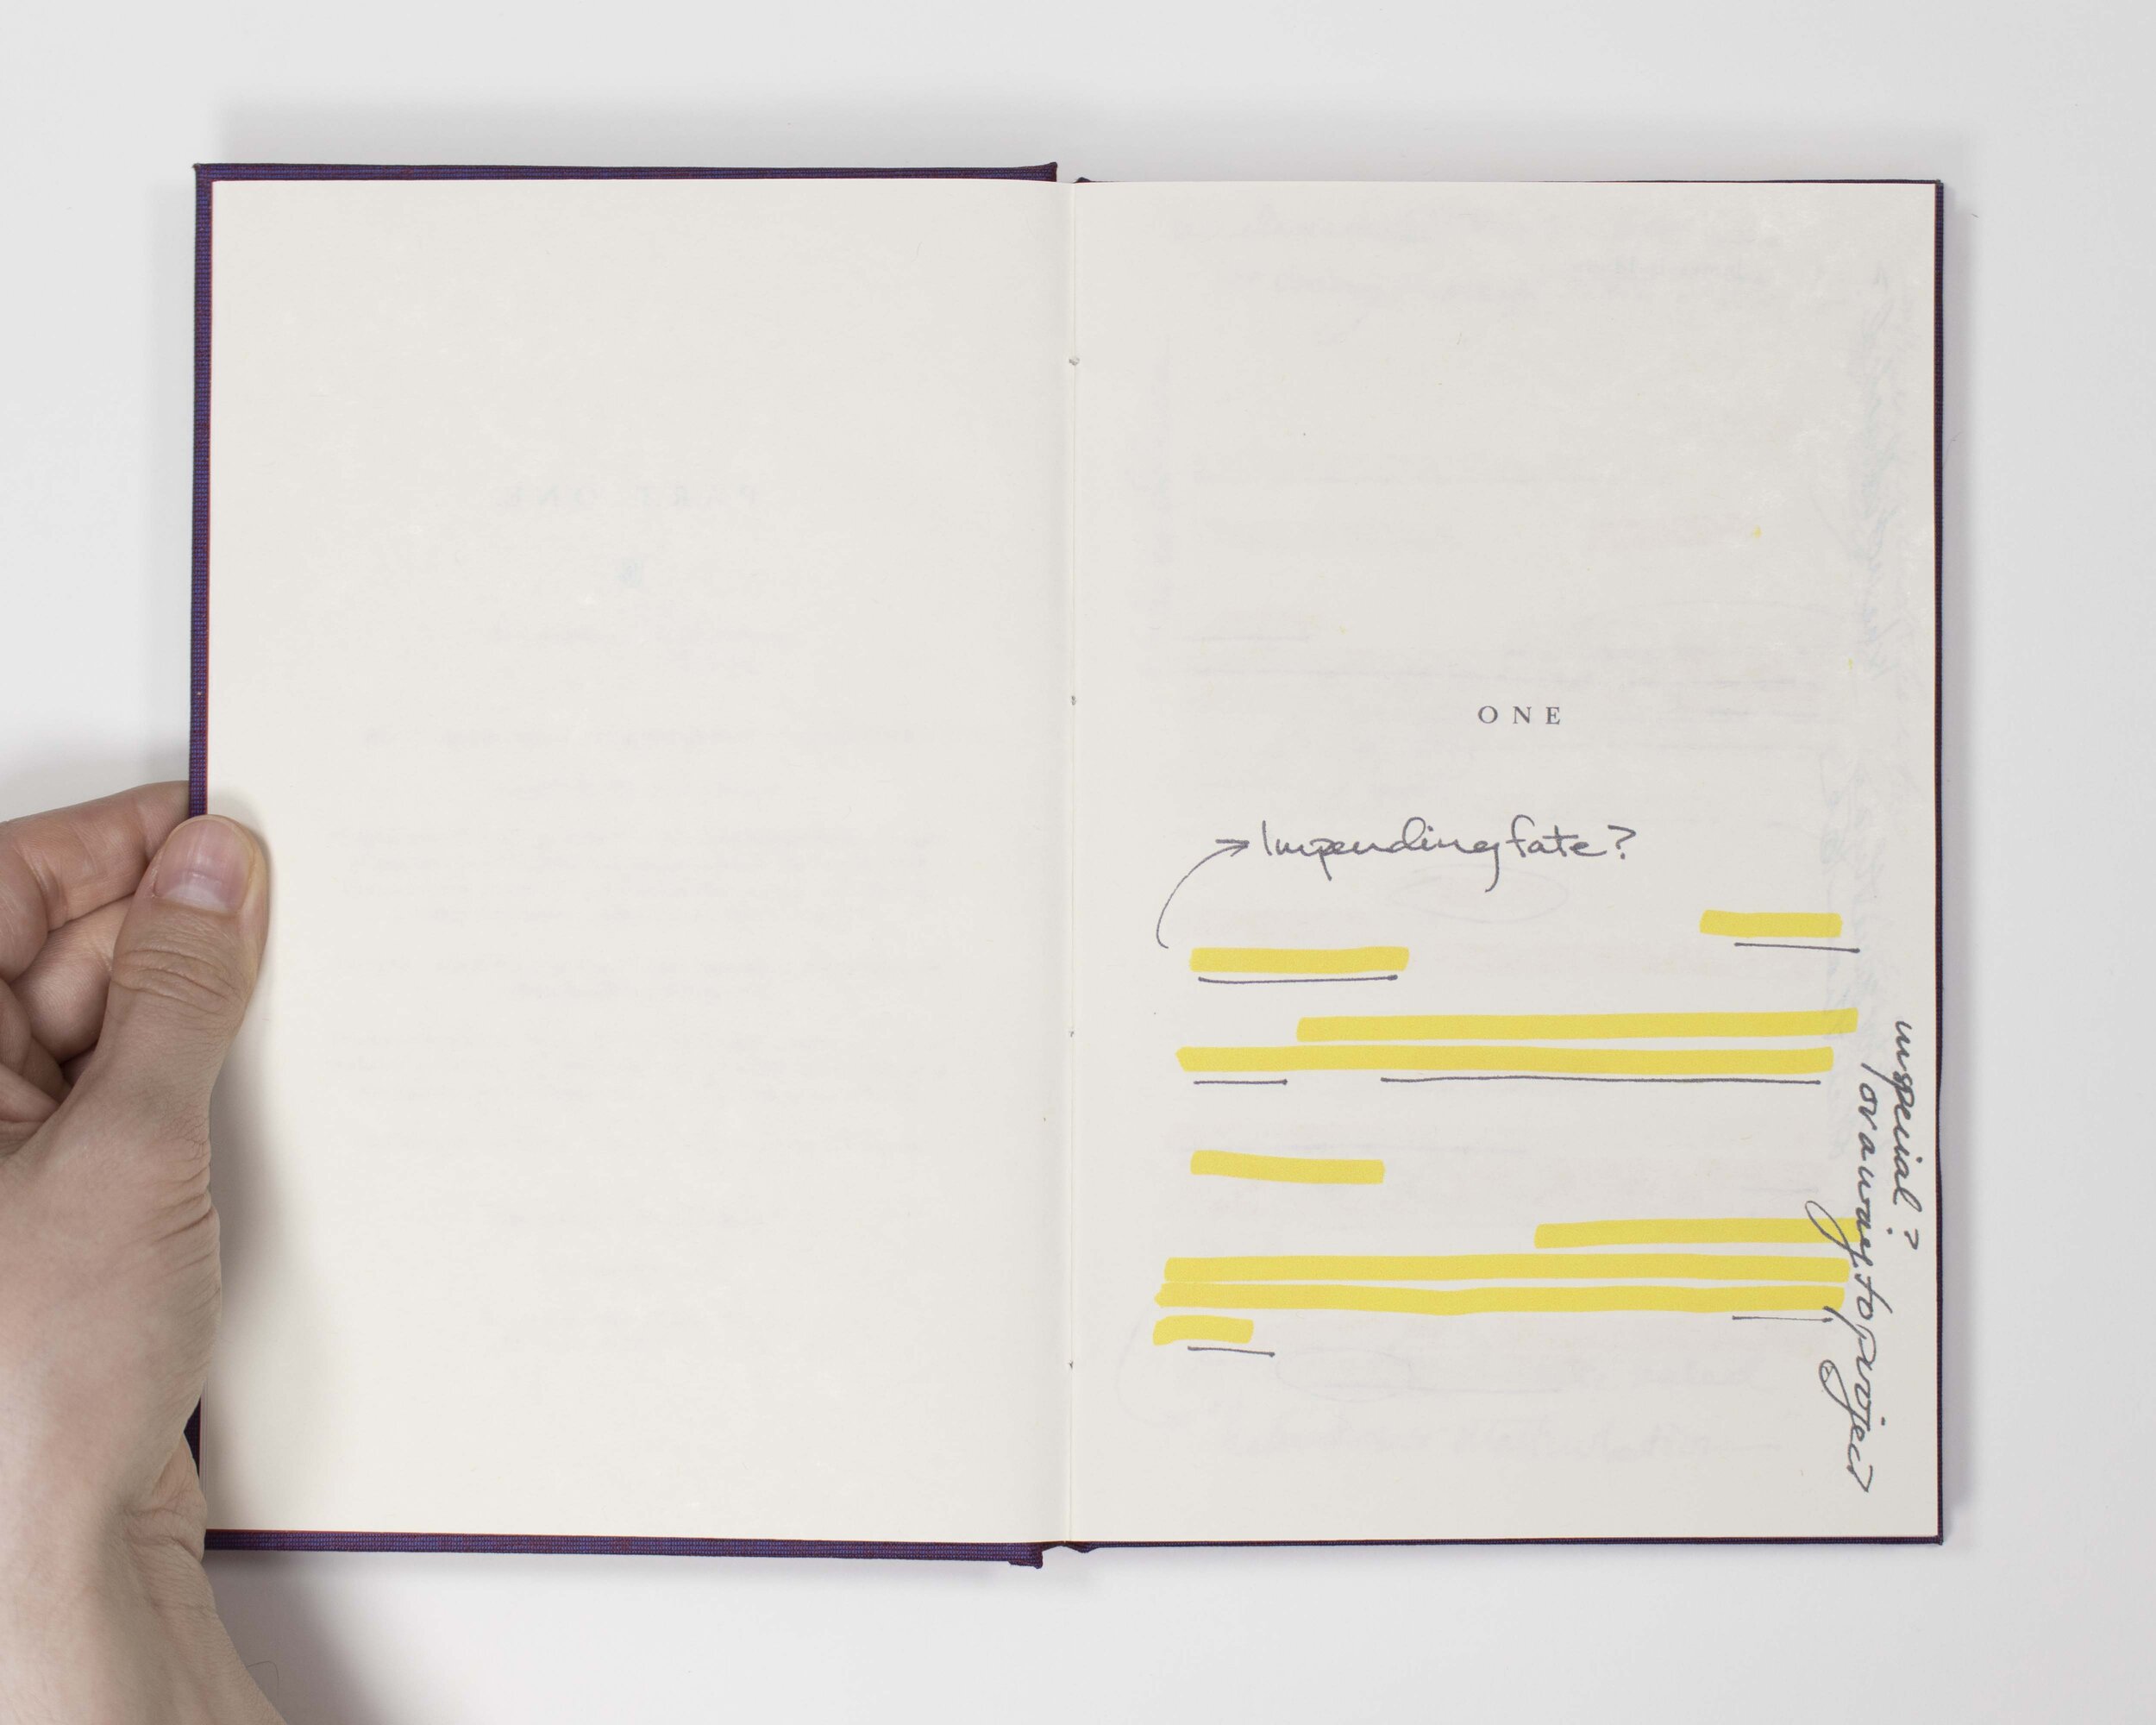 ONE
Impending fate?
unspecial?
or a way to project